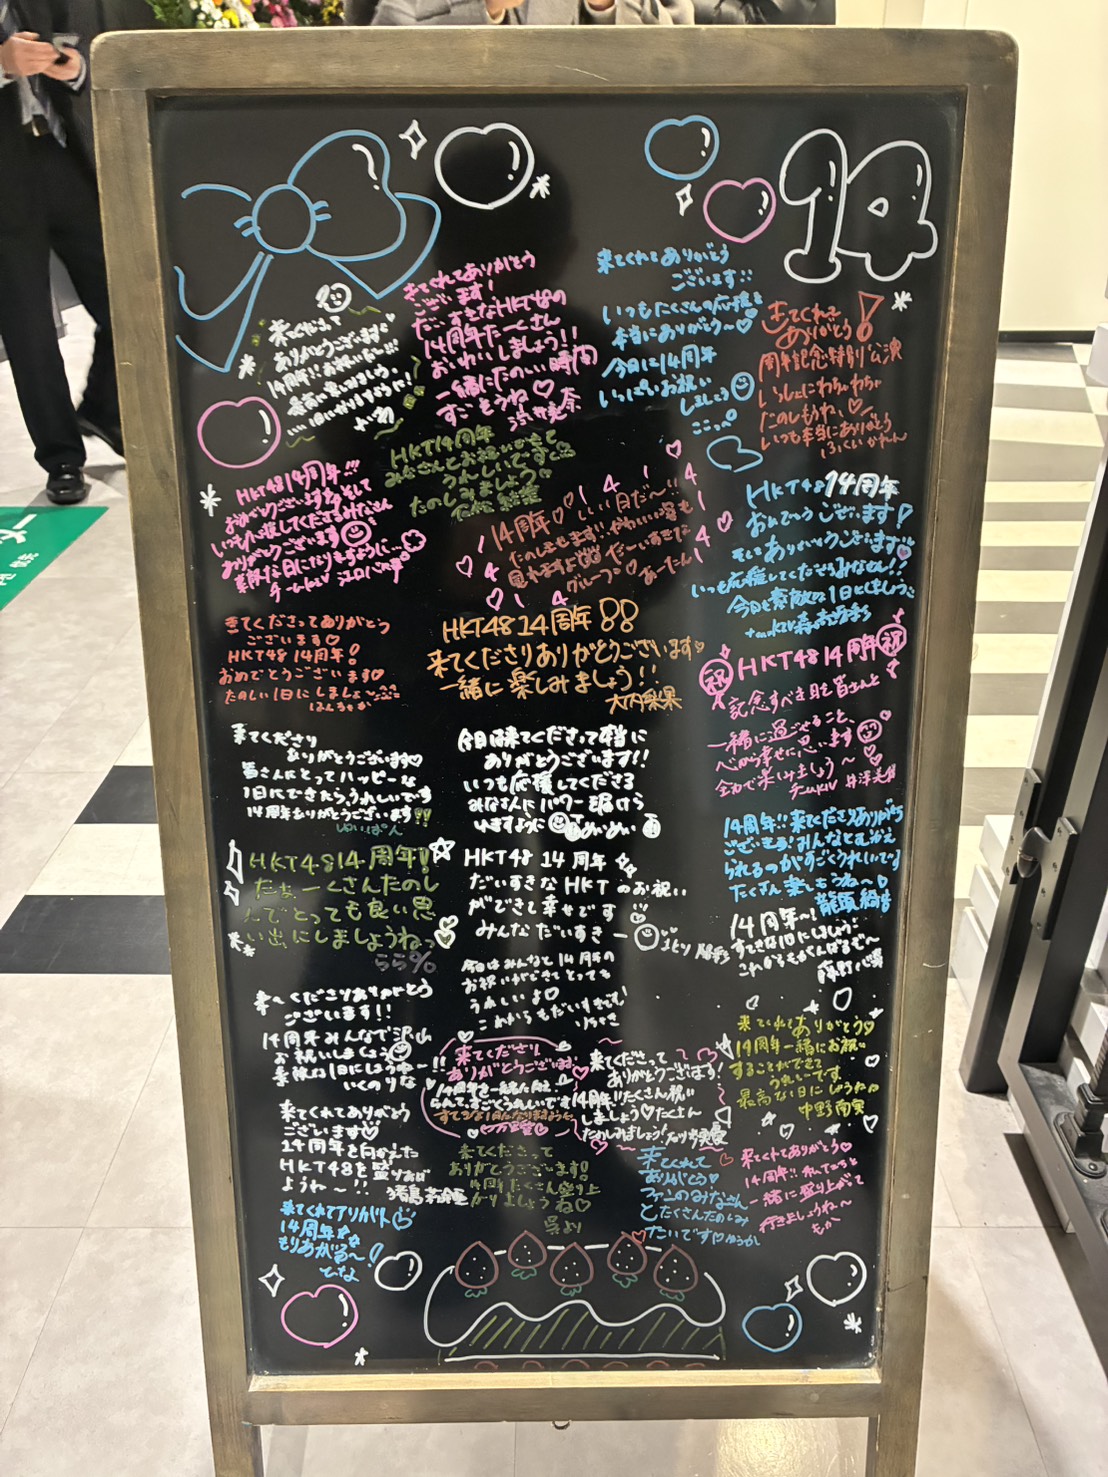 14
来てくださって
ありがとうございます
14周年!! お祝いして
きてくれてありがとう
ございます!
だいすきなHKT48の
14周年たーくさん
おいわいしましょう!!
一緒にたのしい時間
すごそうね♡
来てくれてありがとう
ございます!!
いつもたくさんの応援を
本当にありがとう〜♡
今日は14周年
いっぱいお祝い
しましょう
きてくれて
ありがとう!
周年記念特別公演
いっしょにわちゃわちゃ
たのしもうね、♡
いつも本当にありがとう
ふくい かれん
HKT14周年
みなさんとお祝いできて
うれしいです
たのしみましょう
石松 結菜
HKT48 14周年!!!
おめでとうございます そして
いつも応援してくださるみなさん
ありがとうございます
素敵な日になりますように
チームKIV 江口心々華
14周年♡うれしい日だ〜!!
グループ♡ あーたん
HKT48 14周年
おめでとうございます!
そして ありがとうございます
いつも応援してくださるみなさん!!
今日も素敵な1日にしましょう
きてくださってありがとう
ございます♡
HKT48 14周年!
おめでとうございます
たのしい1日にしましょ
HKT48 14周年 88
来てくださりありがとうございます
一緒に楽しみましょう!!
大内梨果
祝 HKT48 14周年 祝
記念すべき日を皆さんと
一緒に過ごせること、
心から幸せに思います
全力で楽しみましょう〜
チームKIV 井澤美優
来てくださり
ありがとうございます♡
皆さんにとってハッピーな
1日にできたら、うれしいです
14周年ありがとうございます!!
ゆいぱん
今日は来てくださって本当に
ありがとうございます!!
いつも応援してくださる
みなさんにパワー届けら
れますように めいめい
14周年!! 来てくださりありがとう
ございます! みんなとむかえ
られるのがすごくうれしいです
たくさん楽しもうね〜
龍頭綺音
HKT48 14周年!
たぁーくさんたのし
んでとっても良い思
い出にしましょうねっ
らら
HKT48 14周年
だいすきなHKTのお祝い
ができて幸せです
みんなだいすきー
14周年〜!
すてきな1日にしましょう
これからもがんばるぞ〜
今日はみんなと14周年の
お祝いができてとっても
うれしいよ♡
これからもだいすきだよ!
来〜くださりありがとう
ございます!!
14周年みんなで沢山
お祝いしましょう
素敵な1日にしようねー!!
いくのりな
来てくださり
ありがとうございます
14周年を一緒にお祝い
すてきな1日になりますように
来てくださって
ありがとうございます!
14周年!! たくさん祝い
しましょう♡たくさん
たのしみましょう!
来てくれてありがとう♡
14周年一緒にお祝い
することができて
うれしいです
最高な1日にしようね
中野 南実
来てくれてありがとう
ございます♡
14周年を向かえた
HKT48を盛りあげ
ようね〜!!
猪島
来てくださって
ありがとうございます!
14周年たくさん盛り上
がりましょうね♡
来てくれて
ありがとう♡
ファンのみなさん
とたくさんたのしみ
たいです♡ ゆうか
来てくれてありがとう♡
14周年!!
一緒に盛り上がって
行きましょうね〜
もか
来てくれてアリガト
14周年
もりあがる〜!
ひなよ